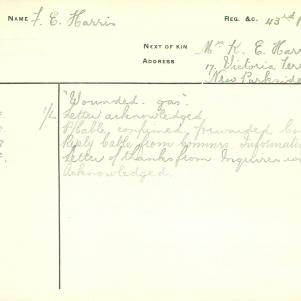 NAME F. E. Harris REG. &C. 43rd
NEXT OF KIN Mrs K. E. Harr
ADDRESS 17, Victoria Terr
New Parkside
"Wounded - gas".
1/2 Letter acknowledged
Cable confirmed, forwarded Co
Reply Cable from Commrs. Informati
Letter of thanks from Inquirer
Acknowledged.